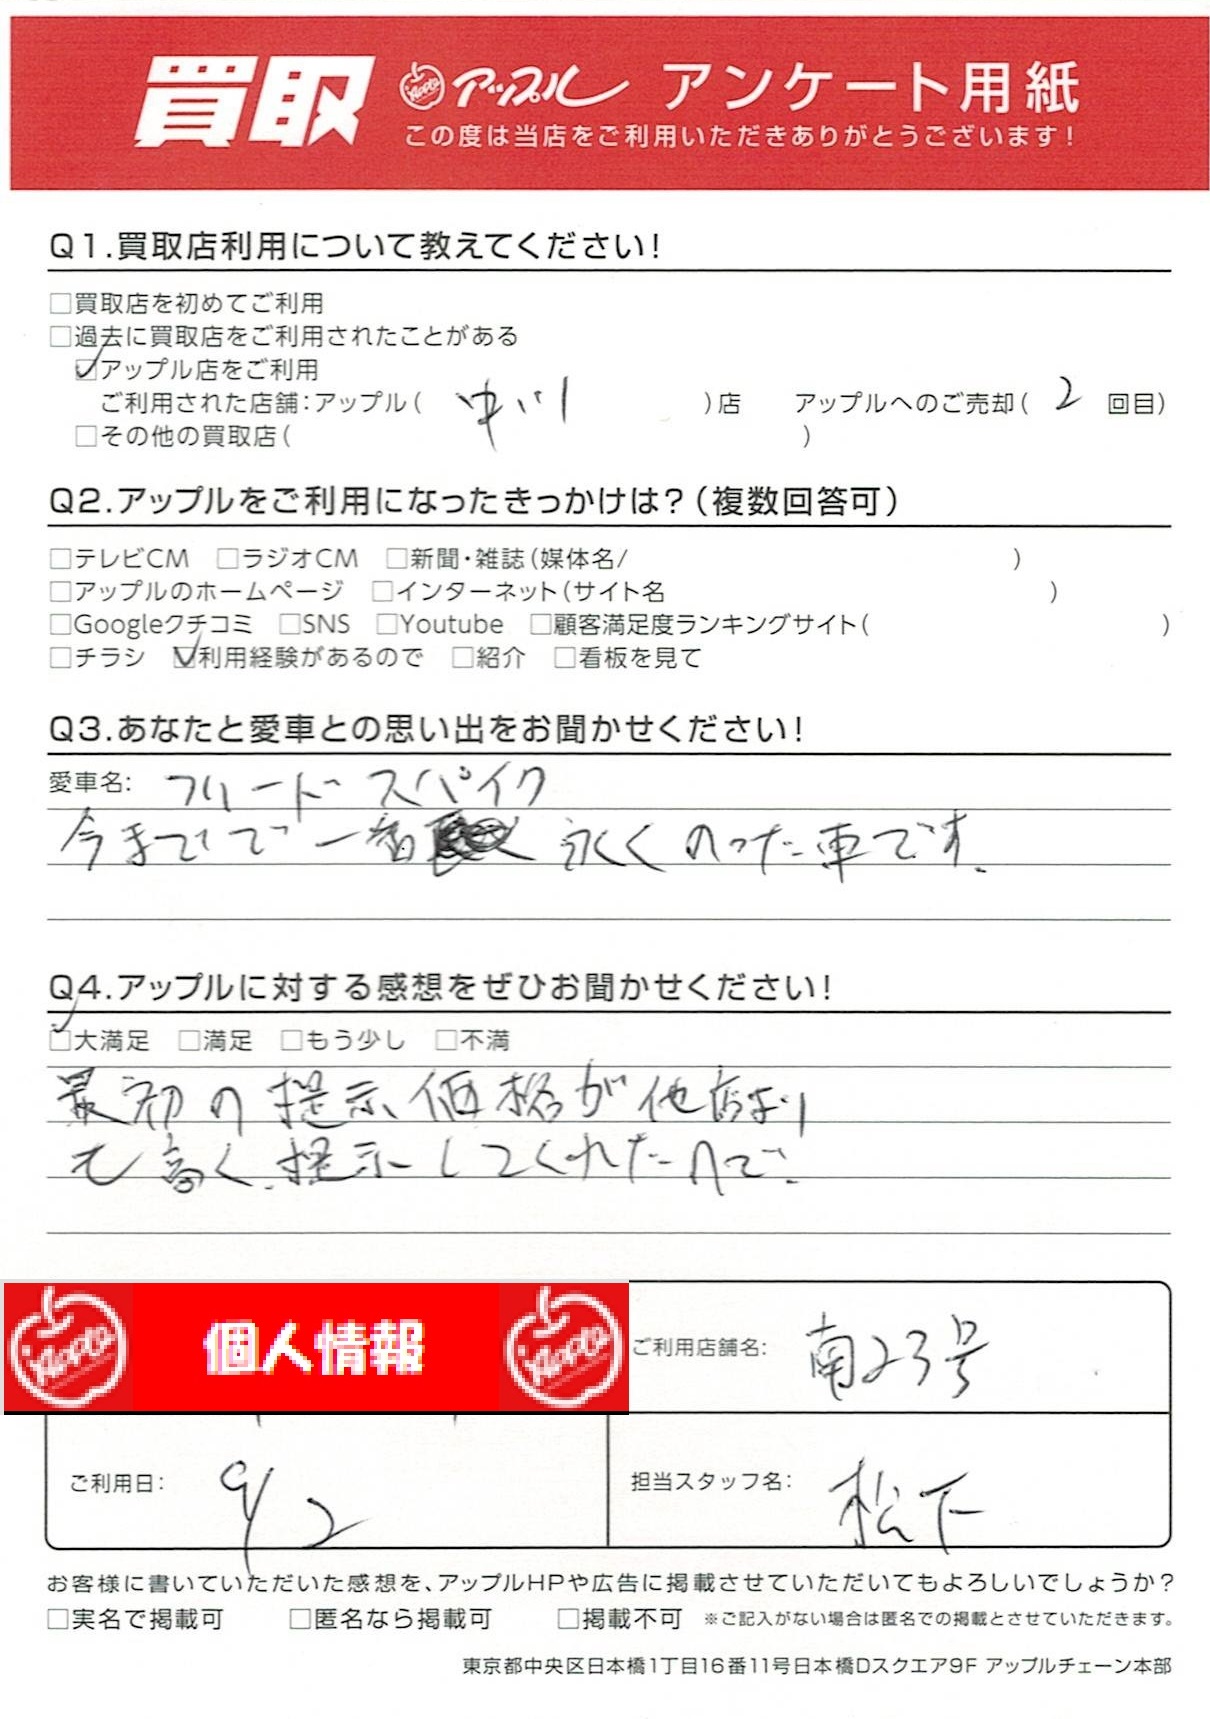 買取 Apple アップル アンケート用紙
この度は当店をご利用いただきありがとうございます!
Q1.買取店利用について教えてください!
□買取店を初めてご利用
□過去に買取店をご利用されたことがある
☑アップル店をご利用
ご利用された店舗:アップル( 中川 )店 アップルへのご売却( 2 回目)
□その他の買取店( )
Q2.アップルをご利用になったきっかけは?(複数回答可)
□テレビCM □ラジオCM □新聞・雑誌(媒体名/ )
□アップルのホームページ □インターネット(サイト名 )
□Googleクチコミ □SNS □Youtube □顧客満足度ランキングサイト( )
□チラシ ☑利用経験があるので □紹介 □看板を見て
Q3.あなたと愛車との思い出をお聞かせください!
愛車名: フリード スパイク
今までで一番 永くのった車です.
Q4.アップルに対する感想をぜひお聞かせください!
☑大満足 □満足 □もう少し □不満
最初の提示価格が他店より
も高く提示してくれたので.
Apple 個人情報 Apple
ご利用店舗名: 南23号
ご利用日: 9/2
担当スタッフ名: 松下
お客様に書いていただいた感想を、アップルHPや広告に掲載させていただいてもよろしいでしょうか?
□実名で掲載可 □匿名なら掲載可 □掲載不可 ※ご記入がない場合は匿名での掲載とさせていただきます。
東京都中央区日本橋1丁目16番11号日本橋Dスクエア9F アップルチェーン本部